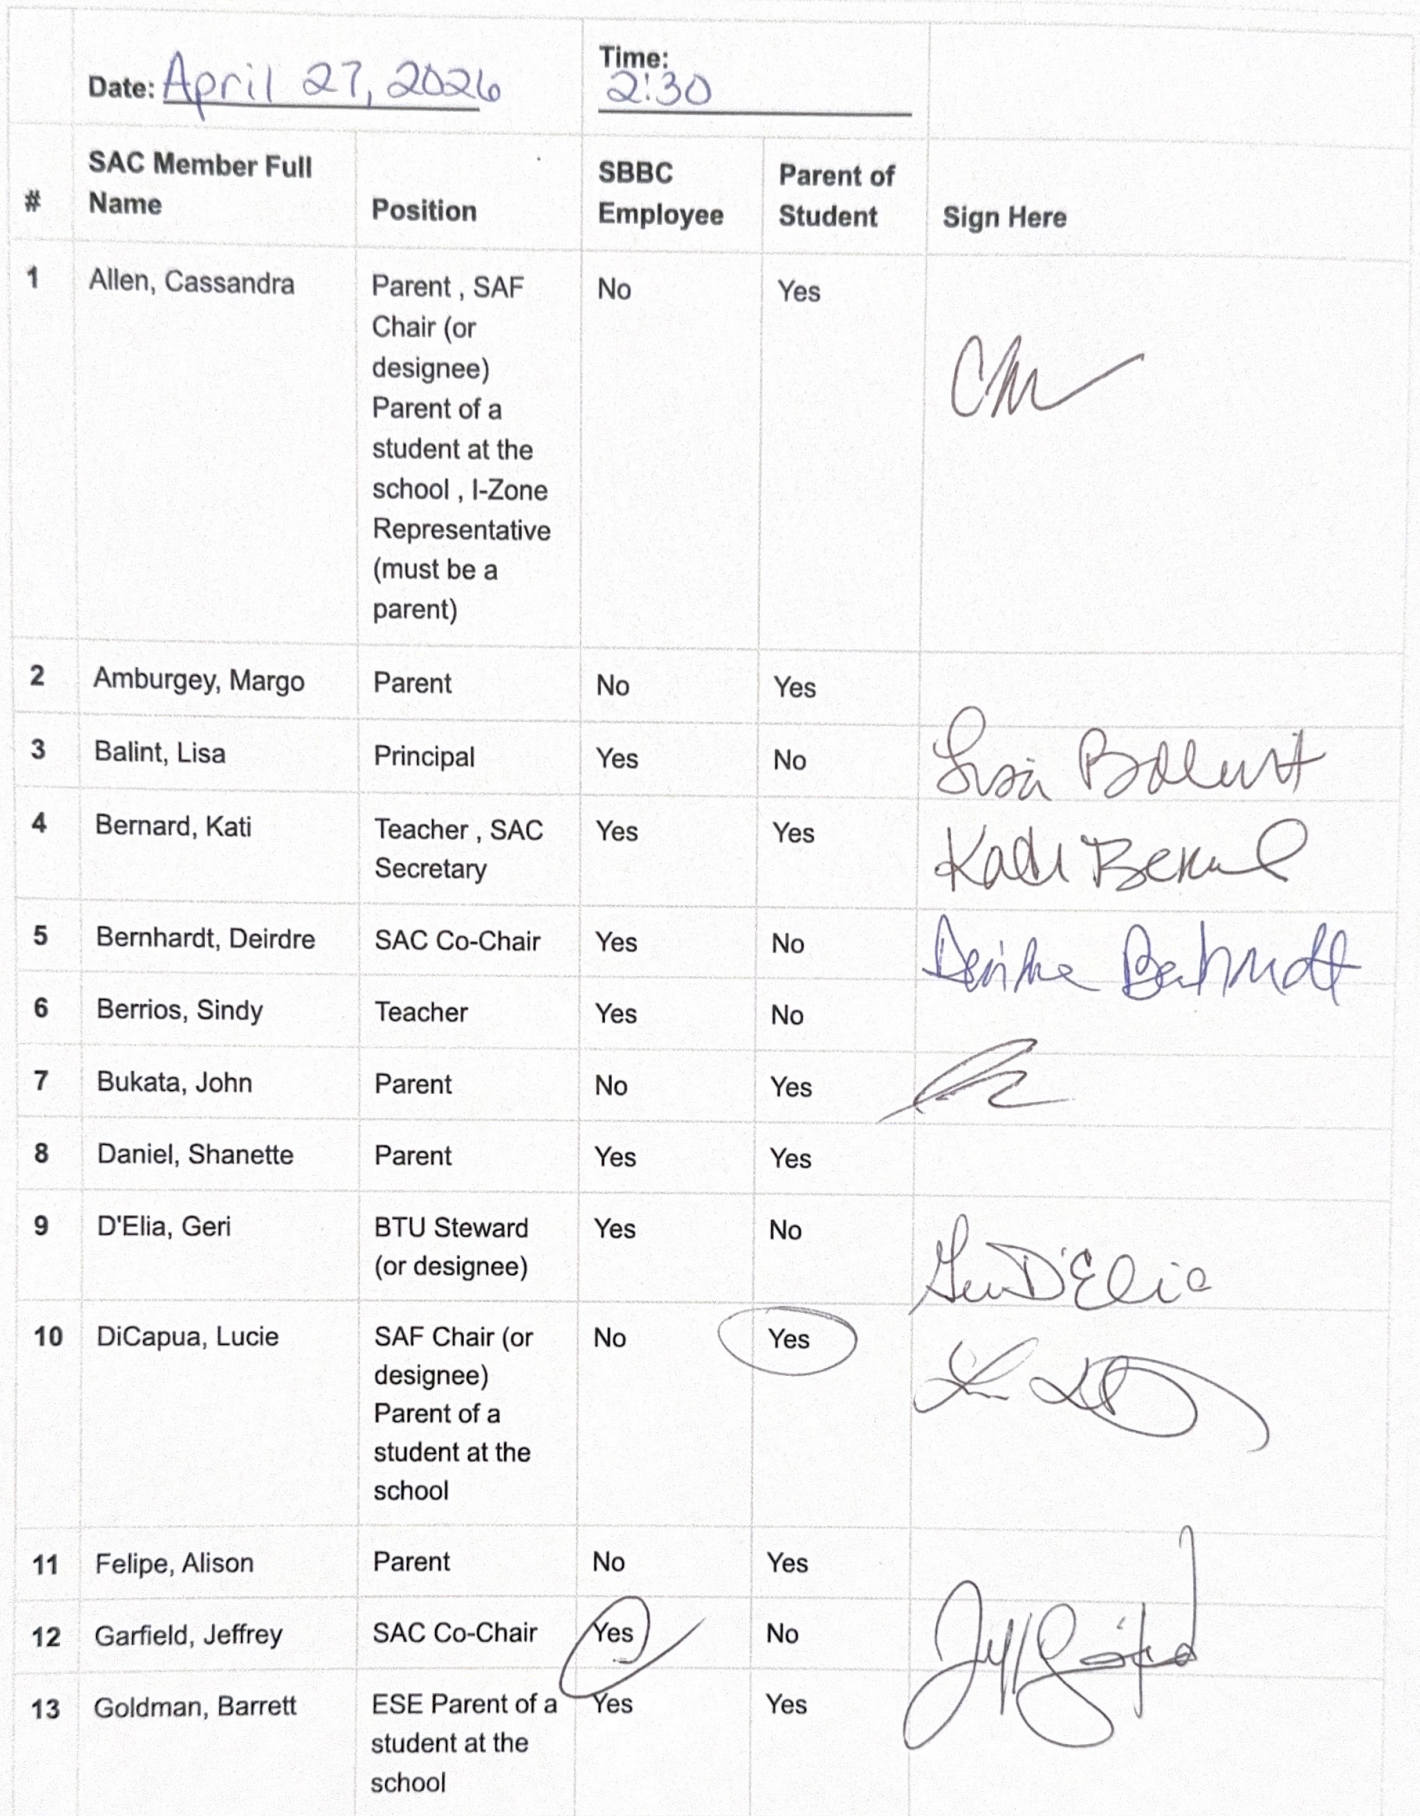 Date: April 27, 2026
Time:
2:30
# SAC Member Full Name Position SBBC Employee Parent of Student Sign Here
1 Allen, Cassandra Parent , SAF No Yes
Chair (or
designee)
Parent of a
student at the
school , I-Zone
Representative
(must be a
parent)
2 Amburgey, Margo Parent No Yes
3 Balint, Lisa Principal Yes No Lisa Balint
4 Bernard, Kati Teacher , SAC Yes Yes Kati Bernard
Secretary
5 Bernhardt, Deirdre SAC Co-Chair Yes No Deirdre Bernhardt
6 Berrios, Sindy Teacher Yes No
7 Bukata, John Parent No Yes
8 Daniel, Shanette Parent Yes Yes
9 D'Elia, Geri BTU Steward Yes No Geri D'Elia
(or designee)
10 DiCapua, Lucie SAF Chair (or No Yes
designee)
Parent of a
student at the
school
11 Felipe, Alison Parent No Yes
12 Garfield, Jeffrey SAC Co-Chair Yes No Jeff Garfield
13 Goldman, Barrett ESE Parent of a Yes Yes
student at the
school